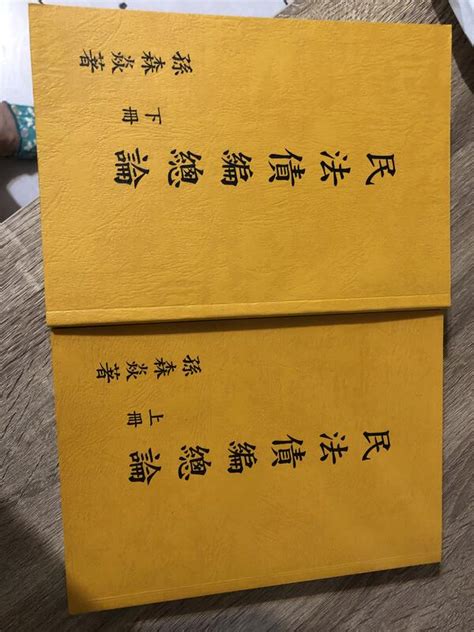 民法債編總論
下冊
孫森焱著
民法債編總論
上冊
孫森焱著